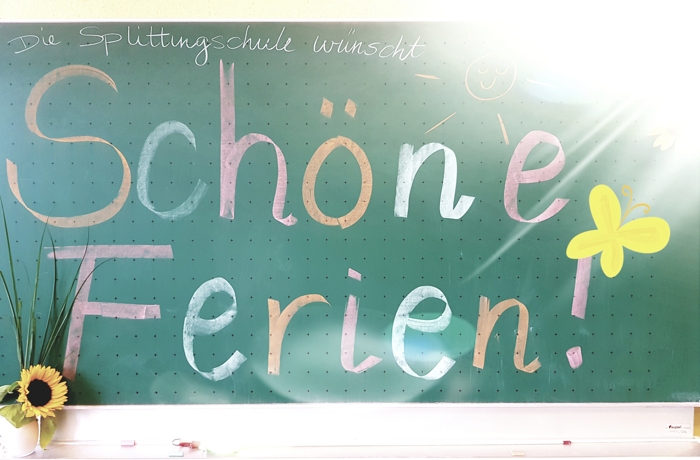 Die Splittingschule wünscht
Schöne
Ferien!